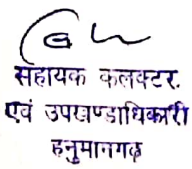 सहायक कलक्टर.
एवं उपखण्डाधिकारी
हनुमानगढ